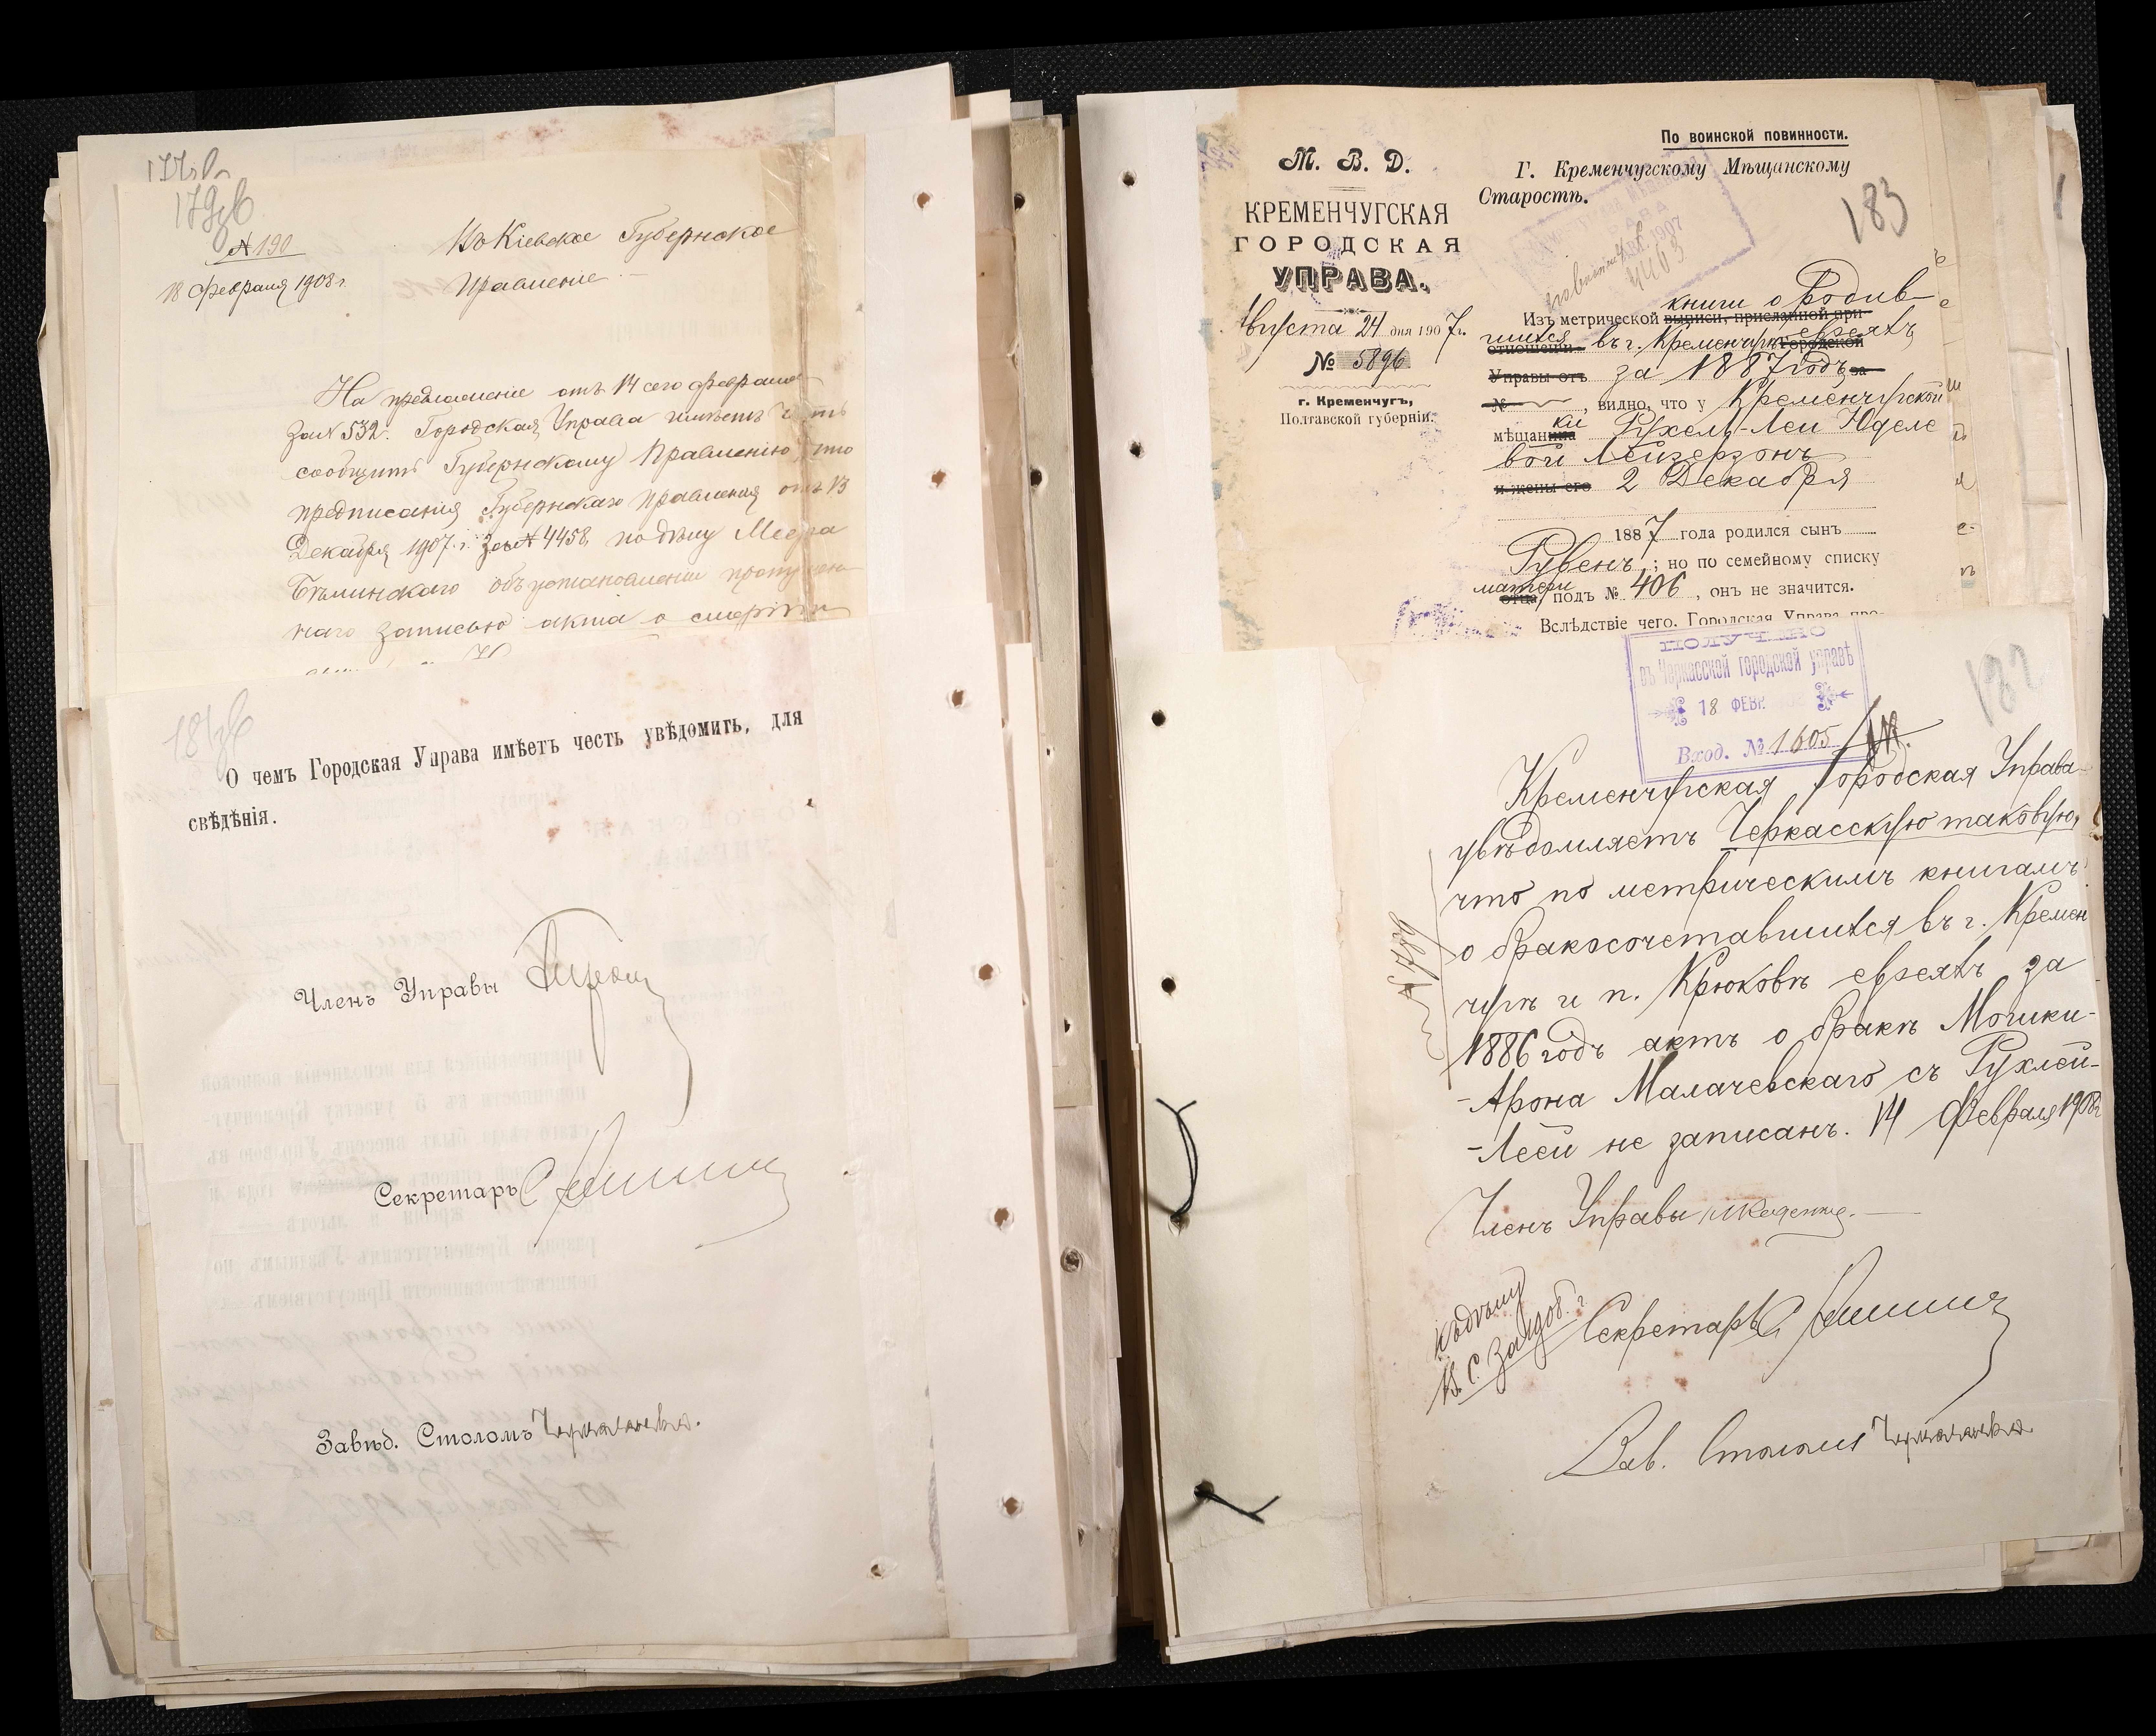 179
№ 190
18 Февраля 1908 г.
Въ Кіевское Губернское
Правленіе
На предложеніе отъ 14 сего февраля
за № 532. Городская Управа имѣетъ честь
сообщить Губернскому Правленію, что
предписанія Губернскаго Правленія отъ 13
Декабря 1907 г. за № 4458, по дѣлу Меера
объ установленіи пропущен
наго записью акта о смерти
О чемъ Городская Управа имѣетъ честь увѣдомить, для
свѣдѣнія.
Членъ Управы
Секретарь
Завѣд. Столомъ
По воинской повинности.
М. В. Д.
КРЕМЕНЧУГСКАЯ
ГОРОДСКАЯ
УПРАВА.
Августа 24 дня 1907 г.
№ 5896
г. Кременчугъ,
Полтавской губерніи.
Г. Кременчугскому Мѣщанскому
Старостѣ.
183
1907
4463
книги о родив-
Изъ метрической выписи, присланной при
шихся въ г. Кременчугѣ евреяхъ
отношеніи Городской
Управы отъ за 1887 годъ за
№ , видно, что у Кременчугской
мѣщанина ки Рухель-Леи Юделе
вой Лейзерзонъ
и жены его 2 Декабря
1887 года родился сынъ
Рувенъ; но по семейному списку
матери
отца подъ № 406, онъ не значится.
Вслѣдствіе чего, Городская Управа про-
ПОЛУЧЕНО
въ Черкасской городской управѣ
18 ФЕВР.
Вход. № 1605
182
Кременчугская Городская Управа
увѣдомляетъ Черкасскую таковую,
что по метрическимъ книгамъ
о бракосочетавшихся въ г. Кремен
чугѣ и п. Крюковѣ евреяхъ за
1886 годъ актъ о бракѣ Мошки-
-Арона Малачевскаго съ Рухлей-
-Леей не записанъ. 14 Февраля 1908 г.
Членъ Управы
къ дѣлу
Секретарь
Зав. Столомъ